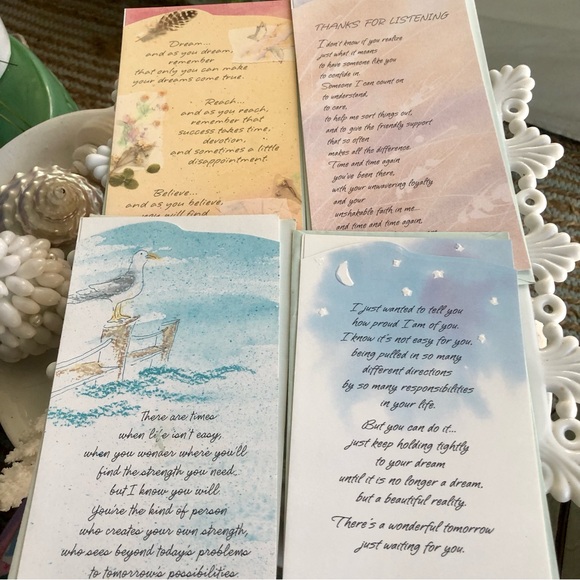 Dream...
and as you dream,
remember
that only you can make
your dreams come true.
Reach...
and as you reach,
remember that
success takes time,
devotion,
and sometimes a little
disappointment.
Believe...
and as you believe,
you will find
THANKS FOR LISTENING
I don't know if you realize
just what it means
to have someone like you
to confide in.
Someone I can count on
to understand,
to care,
to help me sort things out,
and to give the friendly support
that so often
makes all the difference.
Time and time again
you've been there,
with your unwavering loyalty
and your
unshakable faith in me...
and time and time again,
There are times
when life isn't easy,
when you wonder where you'll
find the strength you need...
but I know you will.
You're the kind of person
who creates your own strength,
who sees beyond today's problems
to tomorrow's possibilities.
I just wanted to tell you
how proud I am of you.
I know it's not easy for you,
being pulled in so many
different directions
by so many responsibilities
in your life.
But you can do it...
just keep holding tightly
to your dream
until it is no longer a dream,
but a beautiful reality.
There's a wonderful tomorrow
just waiting for you.